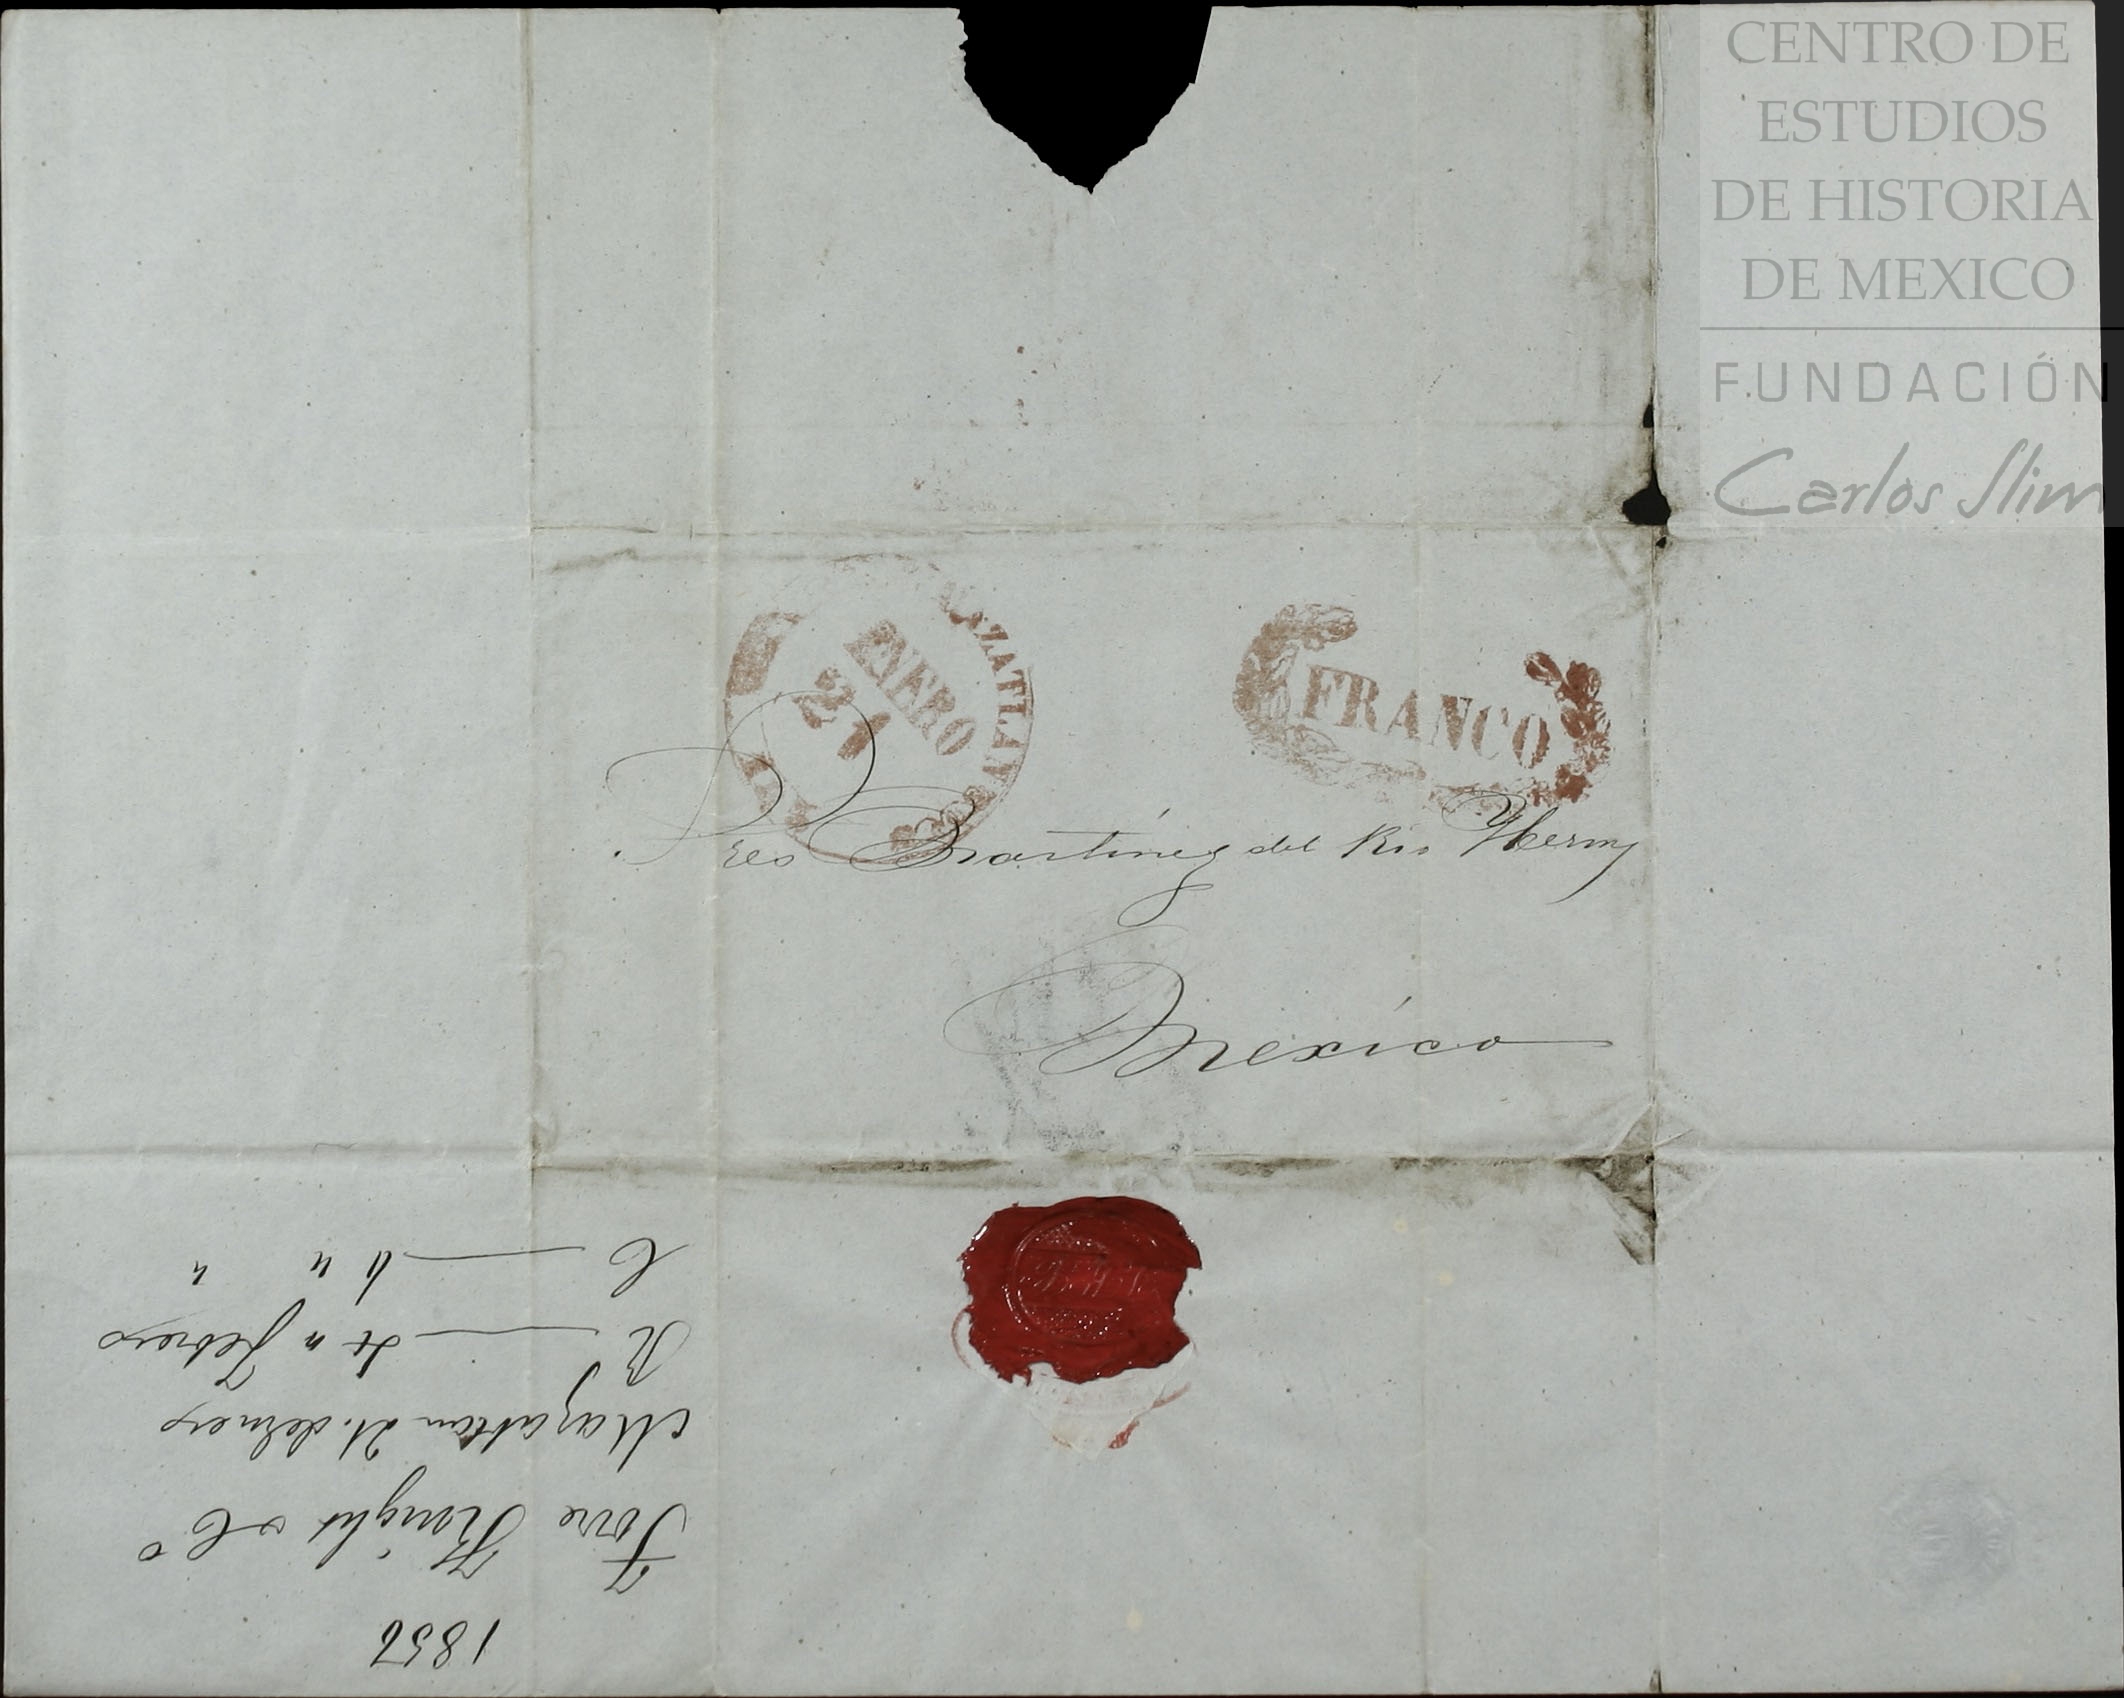 CENTRO DE
ESTUDIOS
DE HISTORIA
DE MEXICO
FUNDACIÓN
Carlos Slim
MAZATLAN
ENERO
21
FRANCO
Sres Martínez del Rio Herms
México
1856
Torre Knight & Co
Mazatlan 21. de Enero
R — 4 " Febrero
C — 6 " "